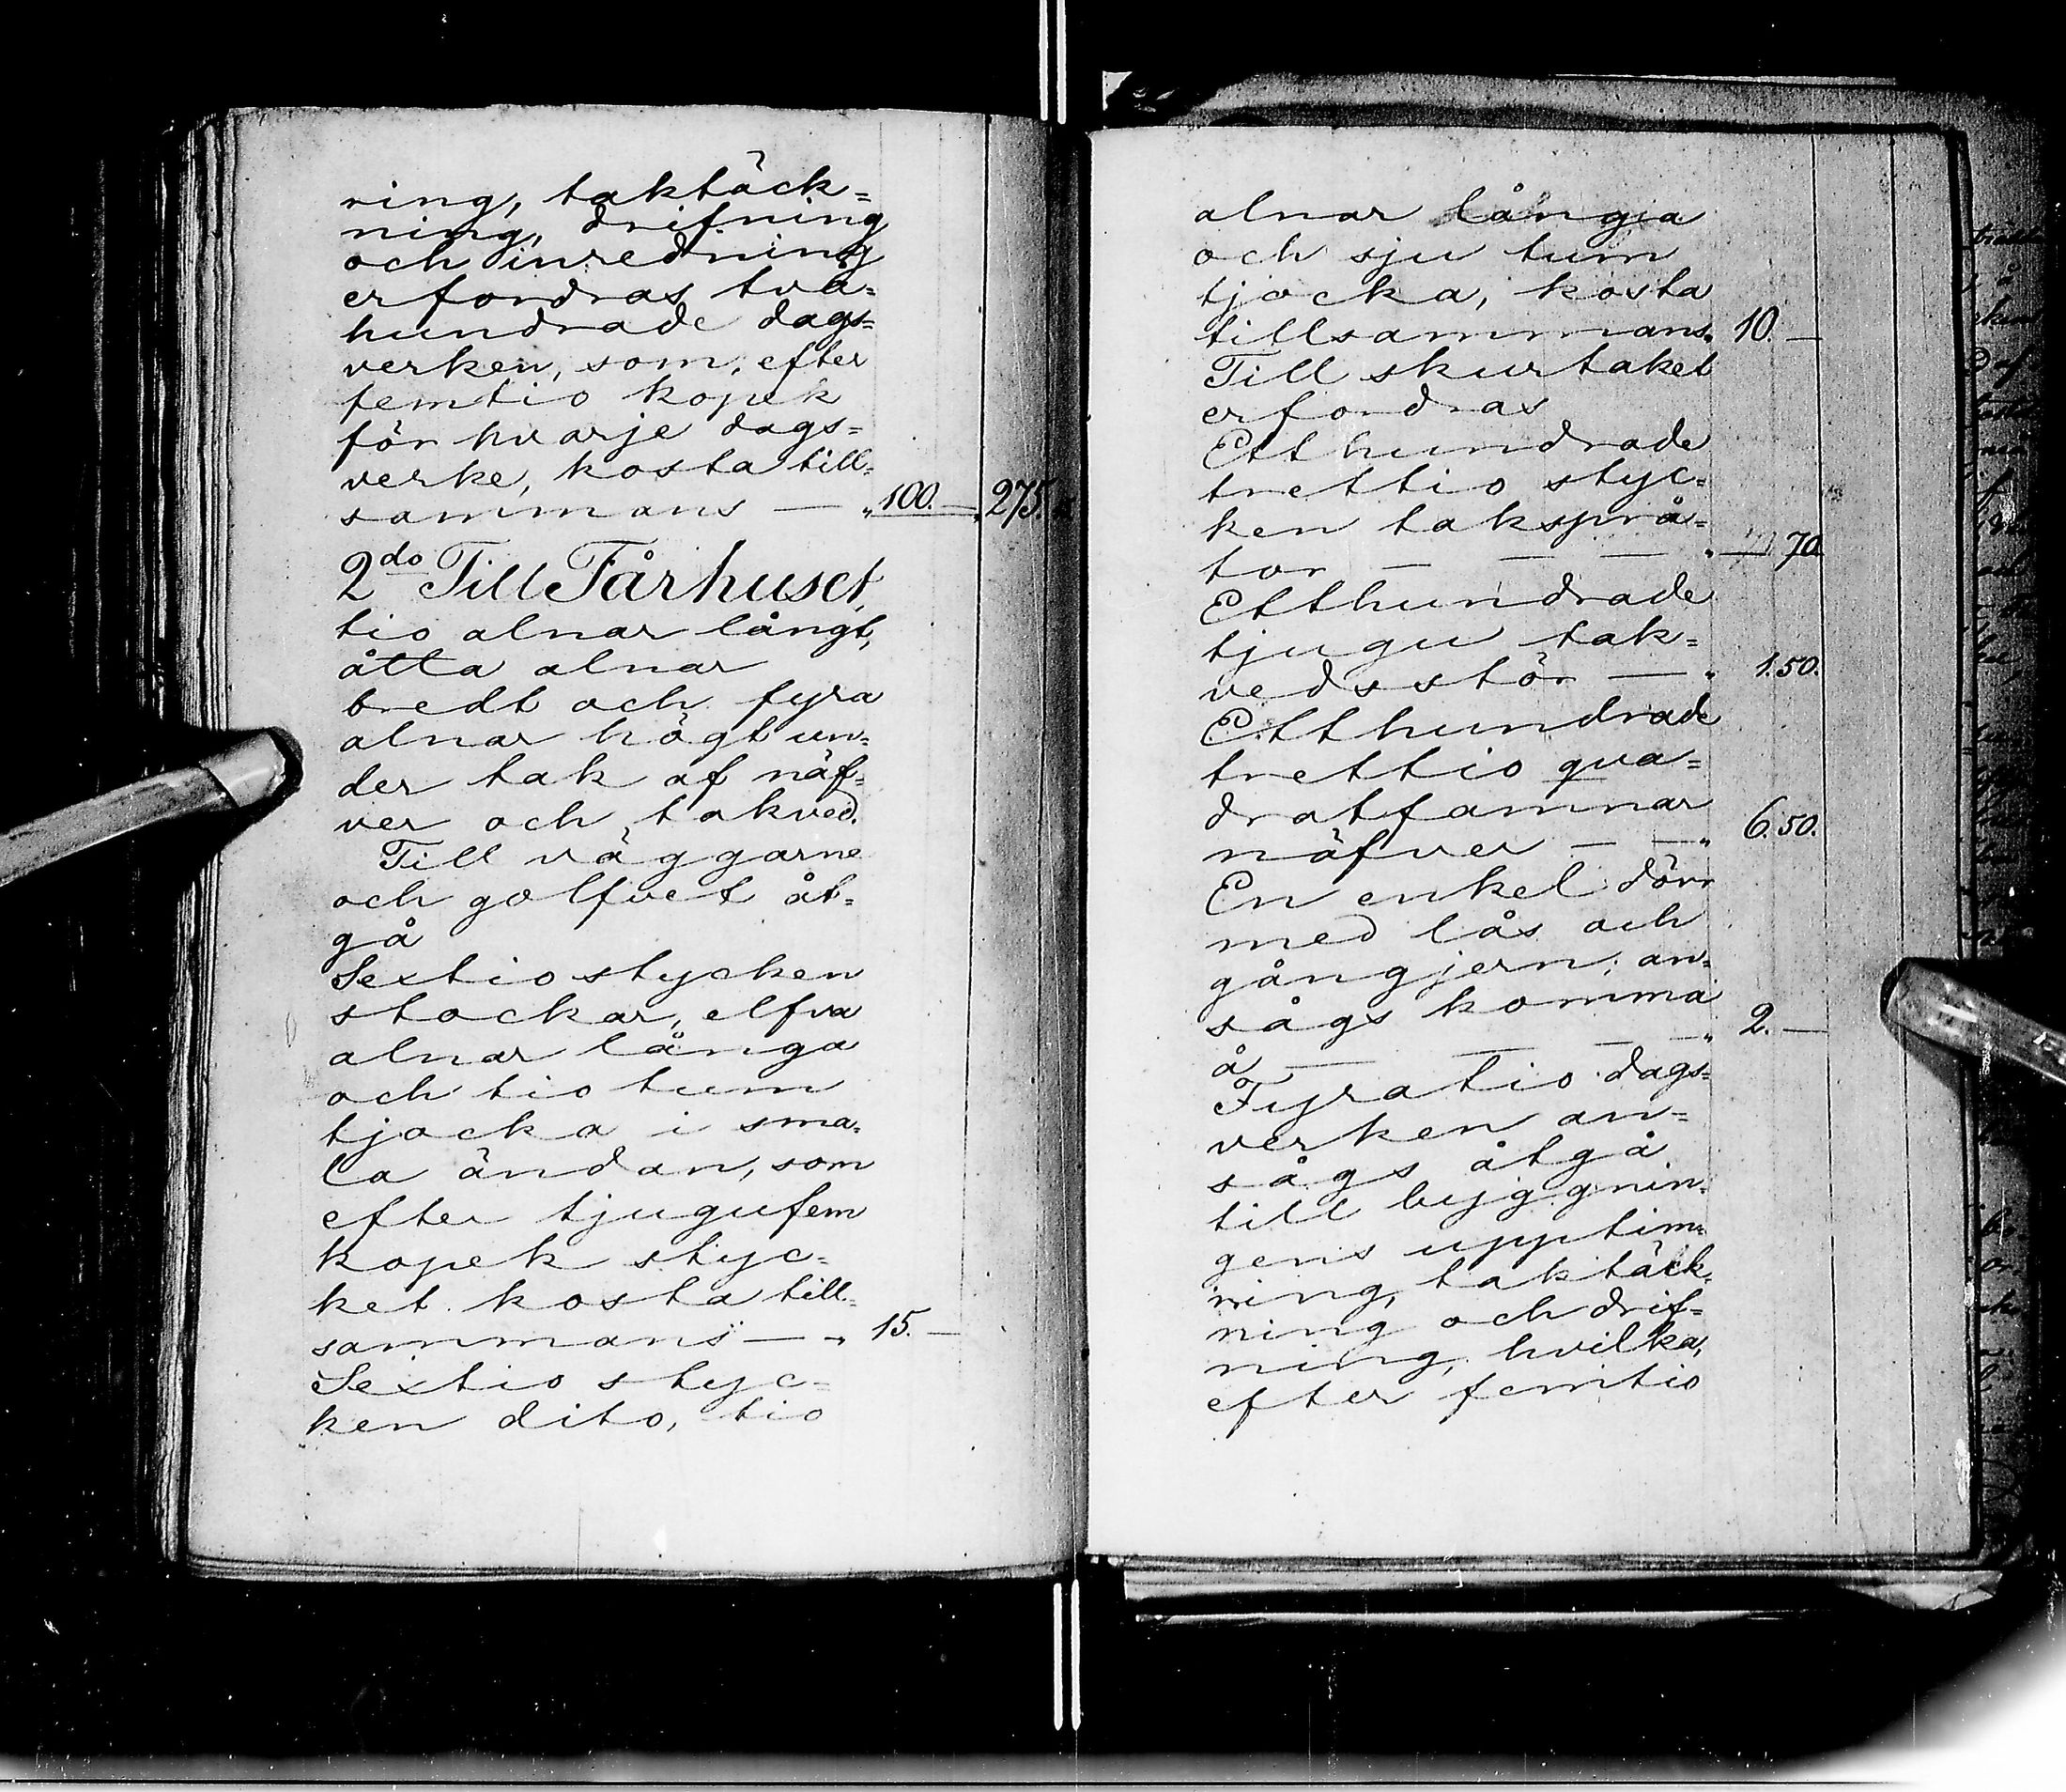 ring, taktäck=
ning, drifning
och inredning
erfordras två=
hundrade dags=
verken, som, efter
femtio kopek
för hvarje dags=
verke, kosta till=
sammans — „ 100. — „ 275.
2do Till Fårhuset,
tio alnar långt,
åtta alnar
bredt och fyra
alnar högt un=
der tak af näf=
ver och takved.
Till väggarne
och golfvet åt=
gå
Sextio stycken
stockar, elfva
alnar långa
och tio tum
tjocka i sma=
la ändan, som
efter tjugufem
kopek styc=
ket kosta till=
sammans — „ 15. —
Sextio styc=
ken dito, tio
alnar långa
och sju tum
tjocka, kosta
tillsammans „ 10. —
Till skurtaket
erfordras
Etthundrade
trettio styc=
ken taksprå=
tor — — — „ — 70
Etthundrade
tjugu tak=
vedsstör — „ 1.50.
Etthundrade
trettio qva=
dratfamnar
näfver — — „ 6.50.
En enkel dörr
med lås och
gångjern, an=
sågs komma
å — — — — „ 2. —
Fyratio dags=
verken an=
sågs åtgå
till byggnin=
gens upptim=
ring, taktäck=
ning och drif=
ning, hvilka,
efter femtio